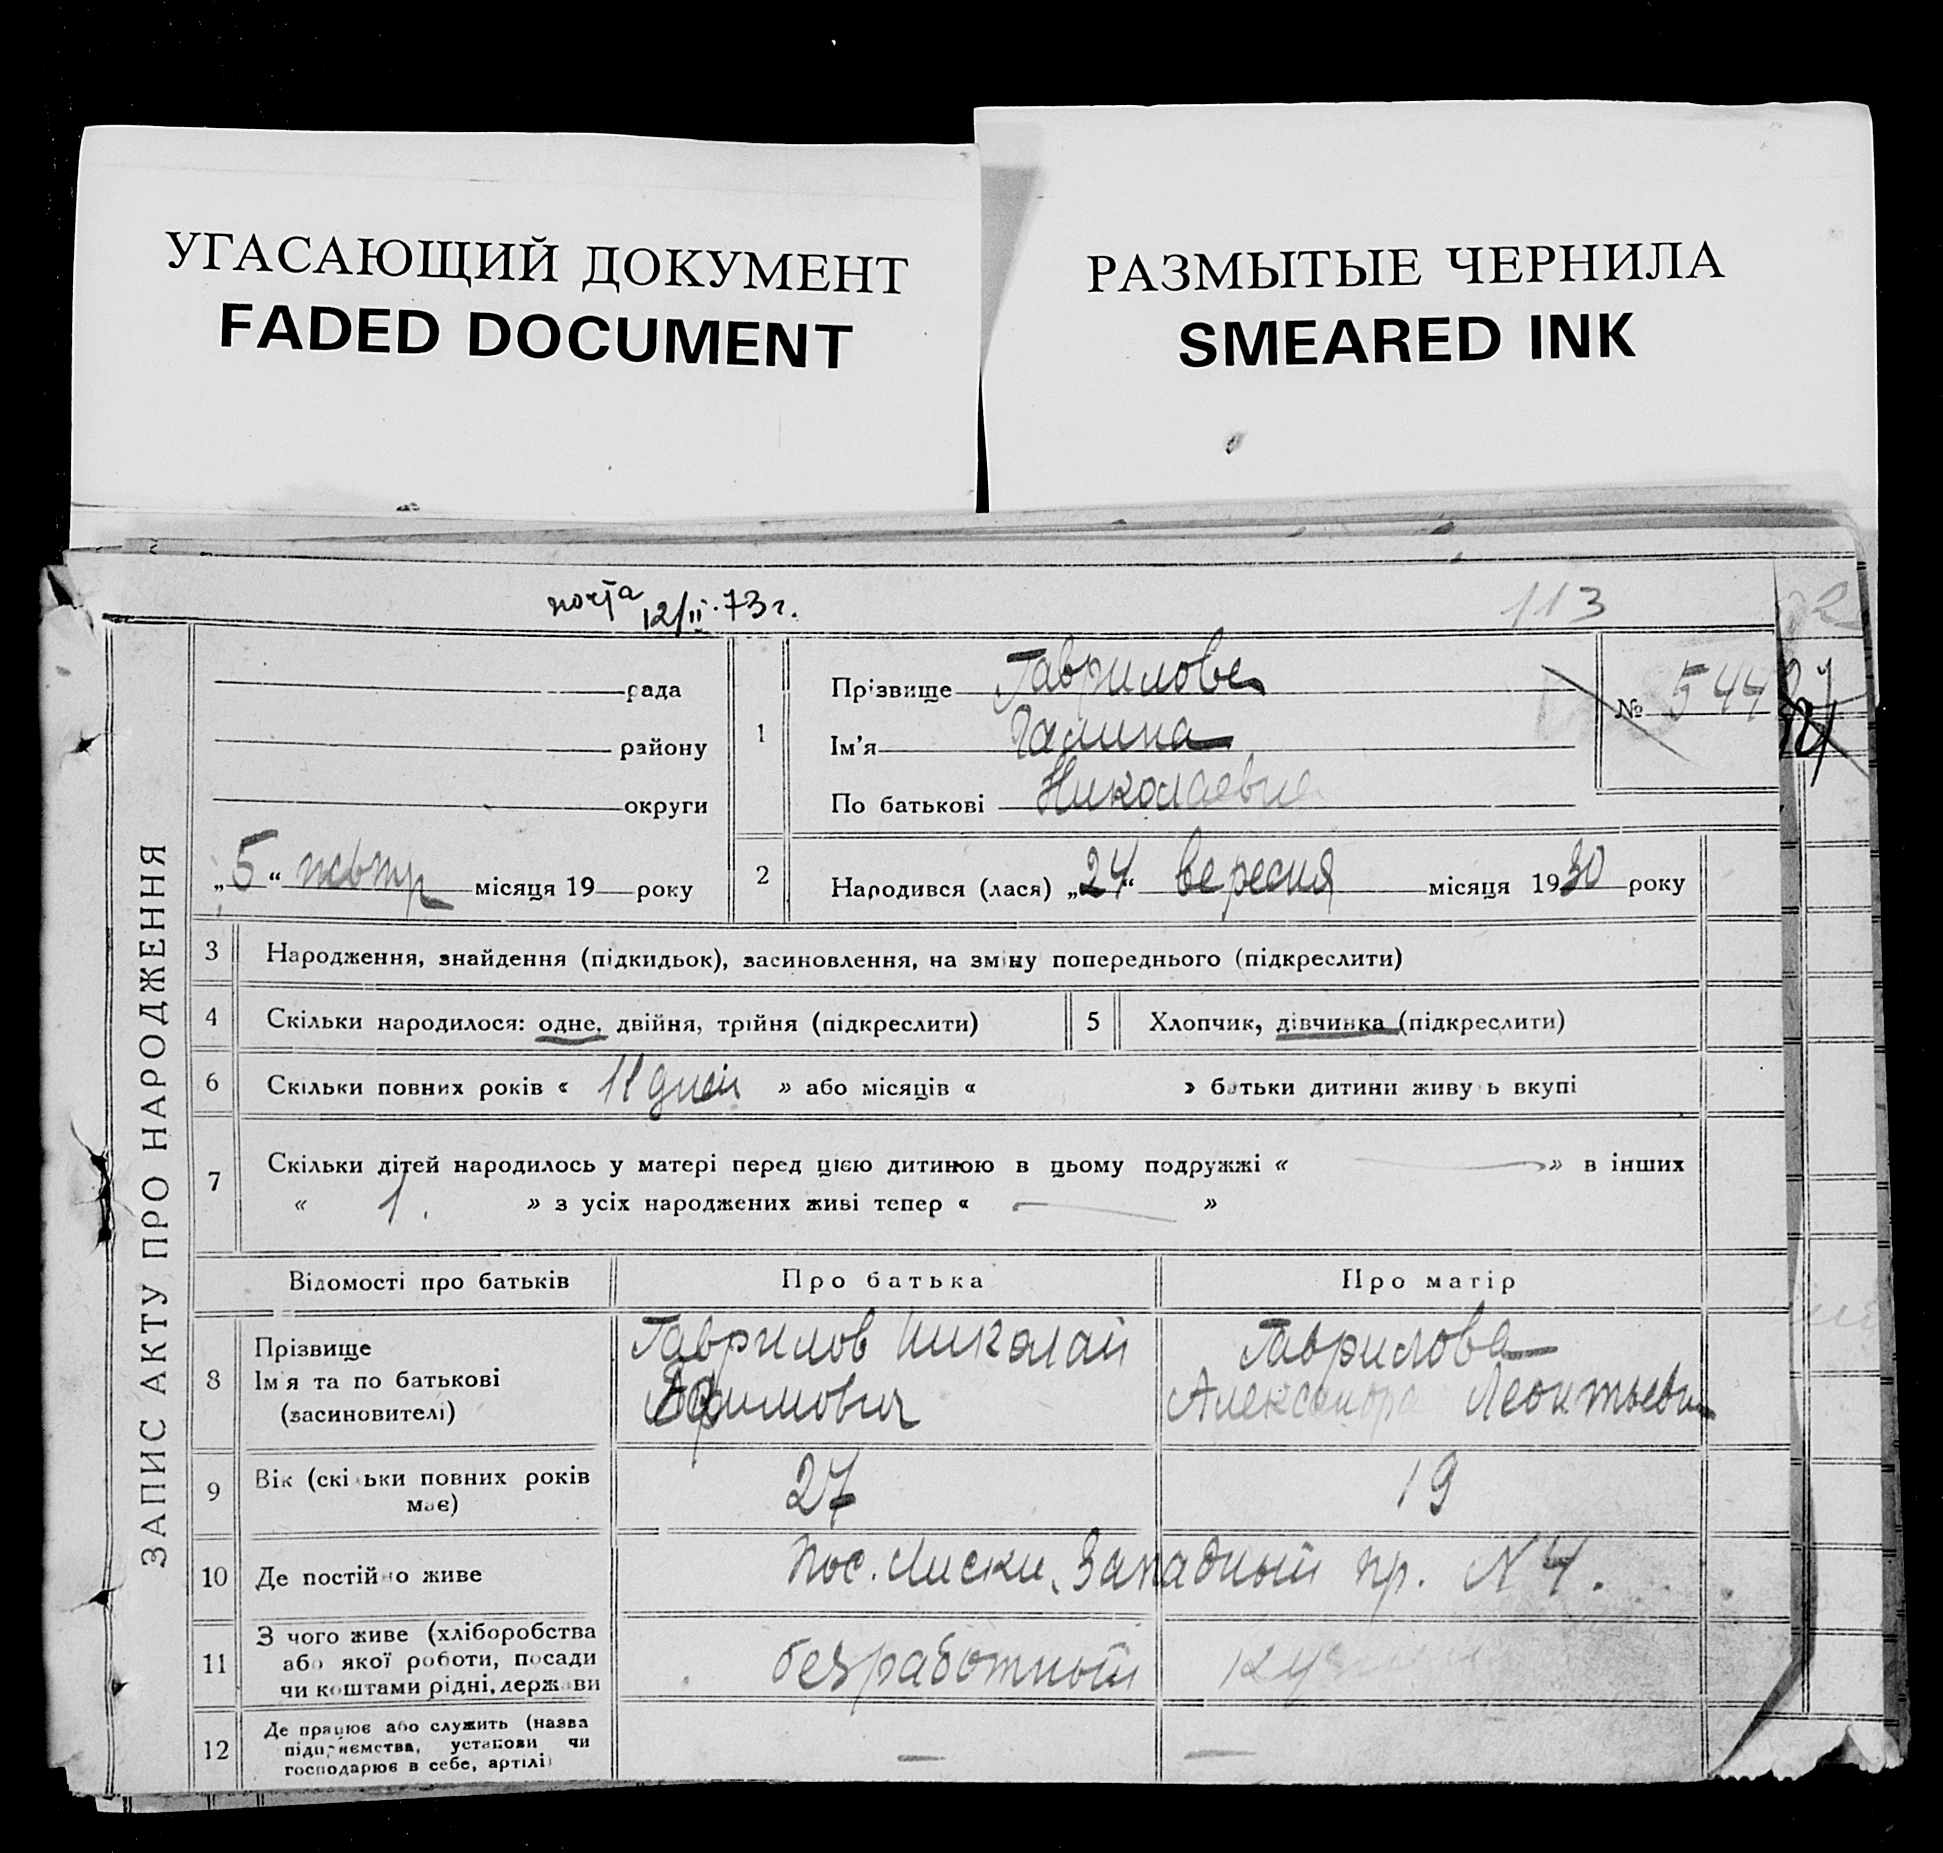 УГАСАЮЩИЙ ДОКУМЕНТ
FADED DOCUMENT
РАЗМЫТЫЕ ЧЕРНИЛА
SMEARED INK
почта 12/II.73г.
113
ЗАПИС АКТУ ПРО НАРОДЖЕННЯ
рада
району
округи
„5“ жовтр місяця 19 року
1
Прізвище Гаврилова
Ім'я Галина
По батькові Николаевна
№ 544
2
Народився (лася) „24“ вересня місяця 1930 року
3 Народження, знайдення (підкидьок), засиновлення, на зміну попереднього (підкреслити)
4 Скільки народилося: одне, двійня, трійня (підкреслити) 5 Хлопчик, дівчинка (підкреслити)
6 Скільки повних років « 11 дней » або місяців « » батьки дитини живуть вкупі
7 Скільки дітей народилось у матері перед цією дитиною в цьому подружжі « — » в інших
« 1. » з усіх народжених живі тепер « — »
Відомості про батьків Про батька Про матір
8 Прізвище
Ім'я та по батькові
(засиновителі)
Гаврилов Николай
Ефимович
Гаврилова
Александра Леонтьевн
9 Вік (скільки повних років
має)
27 19
10 Де постійно живе Пос. Лиски, Западный пр. N 4.
11 З чого живе (хліборобства
або якої роботи, посади
чи коштами рідні, держави
безработный
12 Де працює або служить (назва
підприємства, установи чи
господарює в себе, артілі)
— —